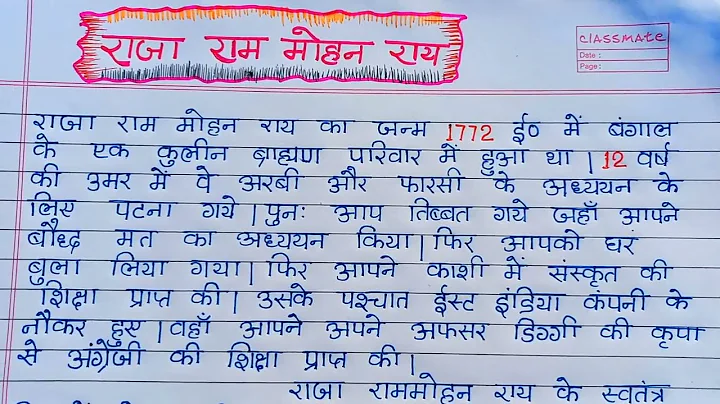 राजा राम मोहन राय
classmate
Date :
Page :
राजा राम मोहन राय का जन्म 1772 ई० में बंगाल
के एक कुलीन ब्राह्मण परिवार में हुआ था | 12 वर्ष
की उमर में वे अरबी और फारसी के अध्ययन के
लिए पटना गये | पुनः आप तिब्बत गये जहाँ आपने
बौध्द मत का अध्ययन किया | फिर आपको घर
बुला लिया गया | फिर आपने काशी में संस्कृत की
शिक्षा प्राप्त की | उसके पश्चात ईस्ट इंडिया कंपनी के
नौकर हुए | वहाँ आपने अपने अफसर डिग्गी की कृपा
से अंग्रेजी की शिक्षा प्राप्त की |
राजा राममोहन राय के स्वतंत्र